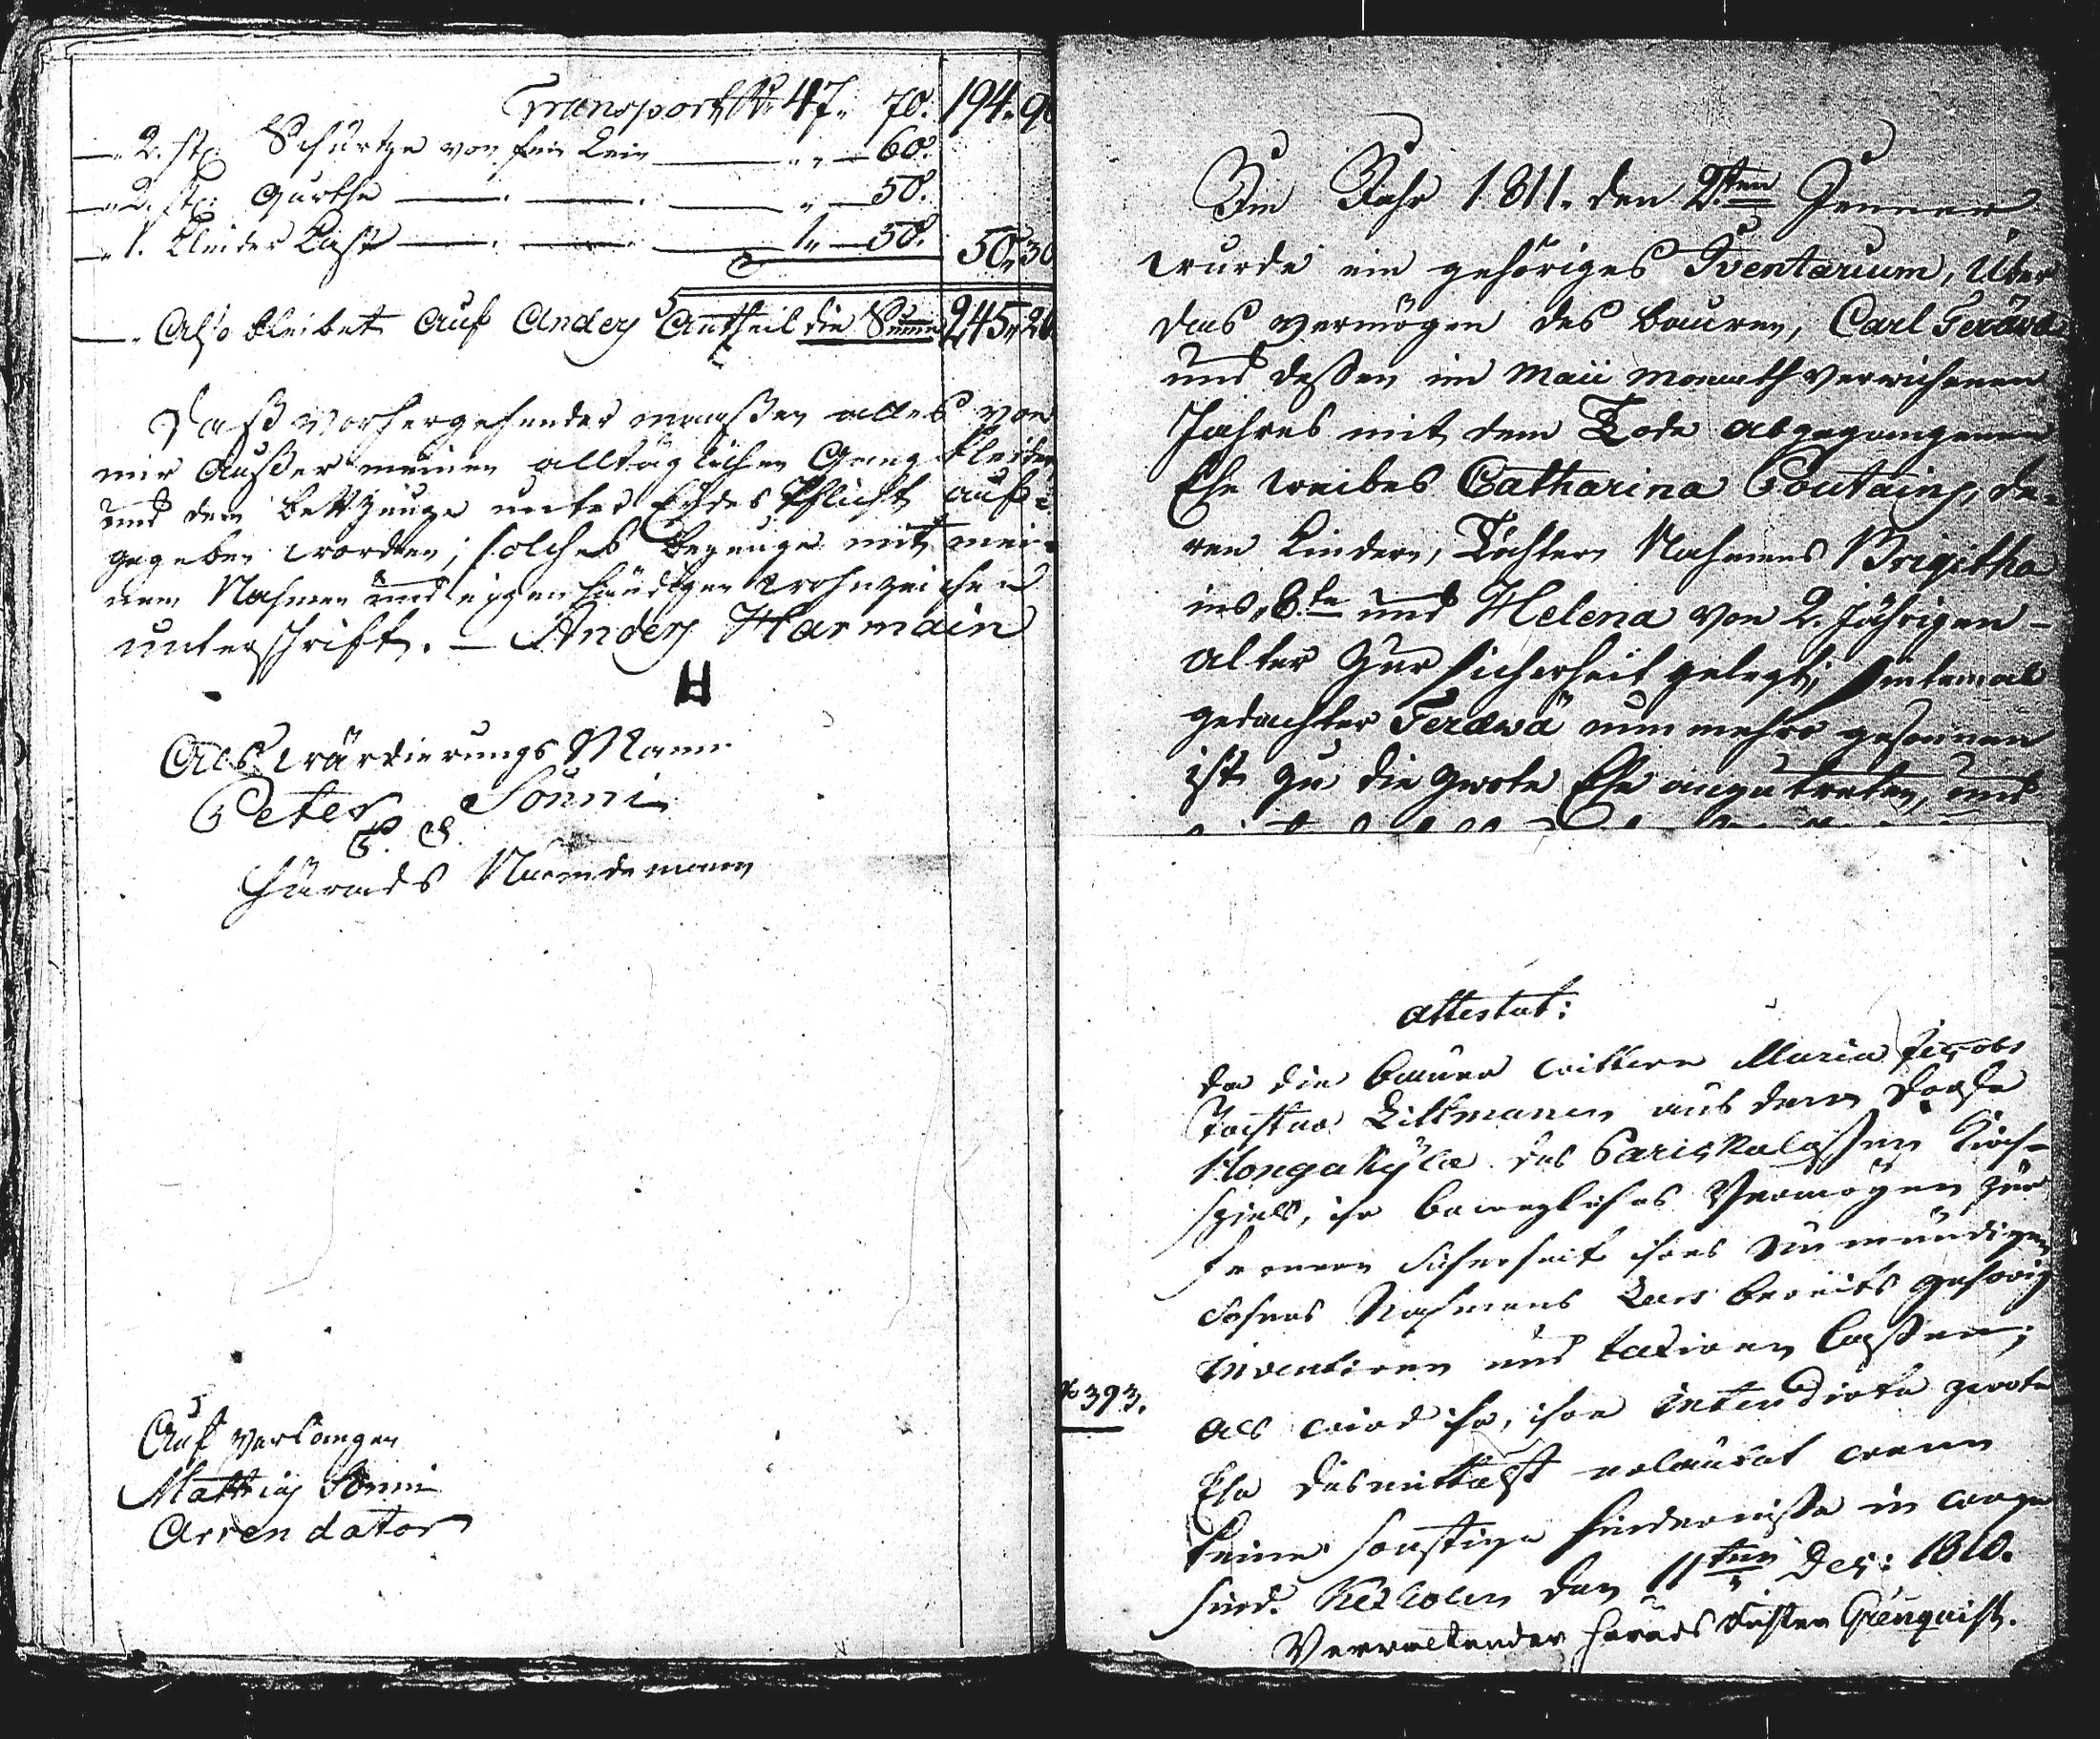 Transport Ru 47„ 70. 194„ 90
—„ 2. stç: Schürtze von fein Lein — „ „ — 60.
—„ 2. stç: Gurthe — — — „ — 50.
—„ 1. Kleider Kast — — — 1„ — 50. 50„ 30
—. Also bleibet Auf Anders Antheil die Summa 245„ 20
Daß vorhergehender maaßen alles von
mir Außer meinen alltäglichen Gang Kleider
und den Bettzeuge unter Eydes Pflicht auf=
gegeben worden; solches bezeuge mit mei=
nem Nahmen und eigenhändigen
unterschrift. — Anders Harmain
H
Als Wärdierungs Mann
Peter Sonni
P. S.
Härads Nämndemann
Auf Verlangen
Matthias Sonni
Arrendator
Im Jahr 1811. den 2ten Jenner
wurde ein gehöriges Iventarium, über
das vermögen des bauren, Carl Teräwä
und deßen im Maii Monath verwichenen
Jahres mit dem Tode abgegangenen
Ehe weibes Catharina Poutains, de=
ren Kindern, Töchtern Nahmens Brigitha
ins 8.te und Helena von 2. Jährigen —
alter Zur sicherheit gelegt; sintemal
gedachter Teräwä nun mehro gesonnen
ist zu die zwote Ehe anzutreten, und
attestat:
da die bauer wittwe Maria Jacobs
Tochter Littmanen aus dem Dorfe
Kongakylä des Parikkalaschen Kirch-
spiels, ihr bewegliches Vermögen zur
fernern Sicherheit ihres Unmündigen
Sohnes Nahmens Lars bereits gehörig
inventiren und taxiren laßen;
№ 393.
als wird ihr, ihre intendirte zwote
Ehe desmittelst erlaubet wenn
keine sonstige Hinderniße in wege
sind. Kexholm den 11ten Dec: 1810.
Verwaltender Härads Richter Grénquist.